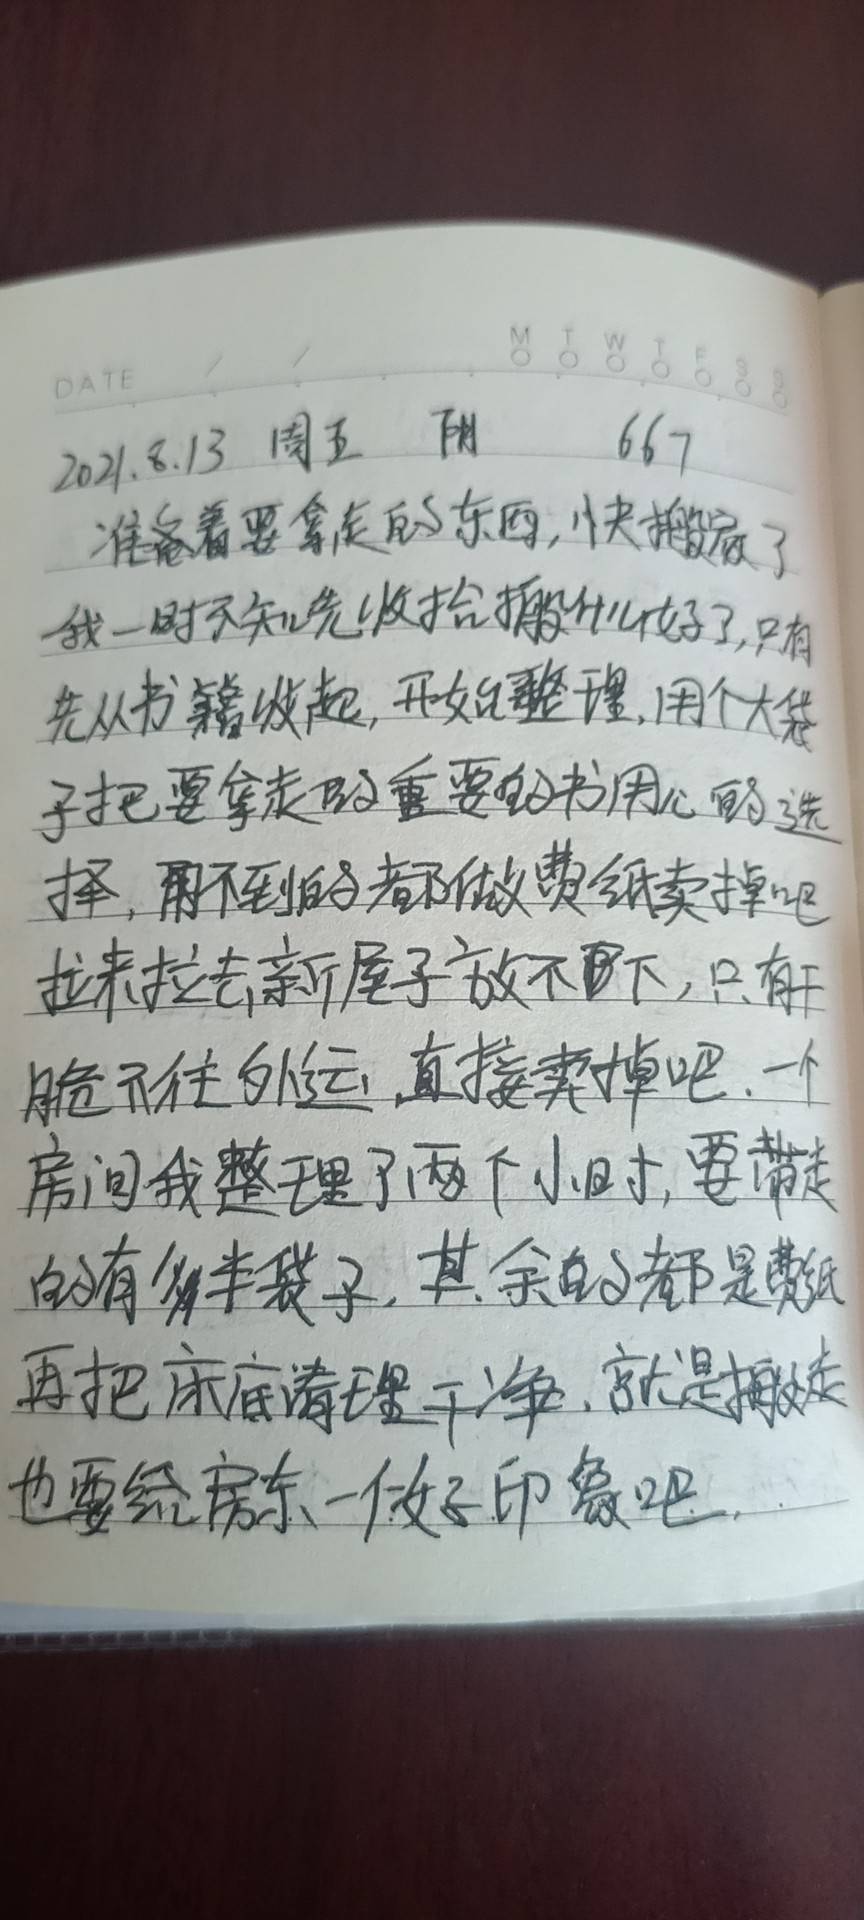 DATE / / M T W T F S S
2021.8.13 周五 阴 667
准备着要拿走的东西,快搬家了
我一时不知先收拾搬什么好了,只有
先从书籍收起,开始整理,用个大袋
子把要拿走的重要的书用心的选
择,用不到的都做费纸卖掉吧
拉来拉去,新屋子放不下,只有干
脆不往外运,直接卖掉吧.一个
房间我整理了两个小时,要带走
的有多半袋子,其余的都是费纸
再把床底清理干净.就是搬走
也要给房东一个好印象吧.